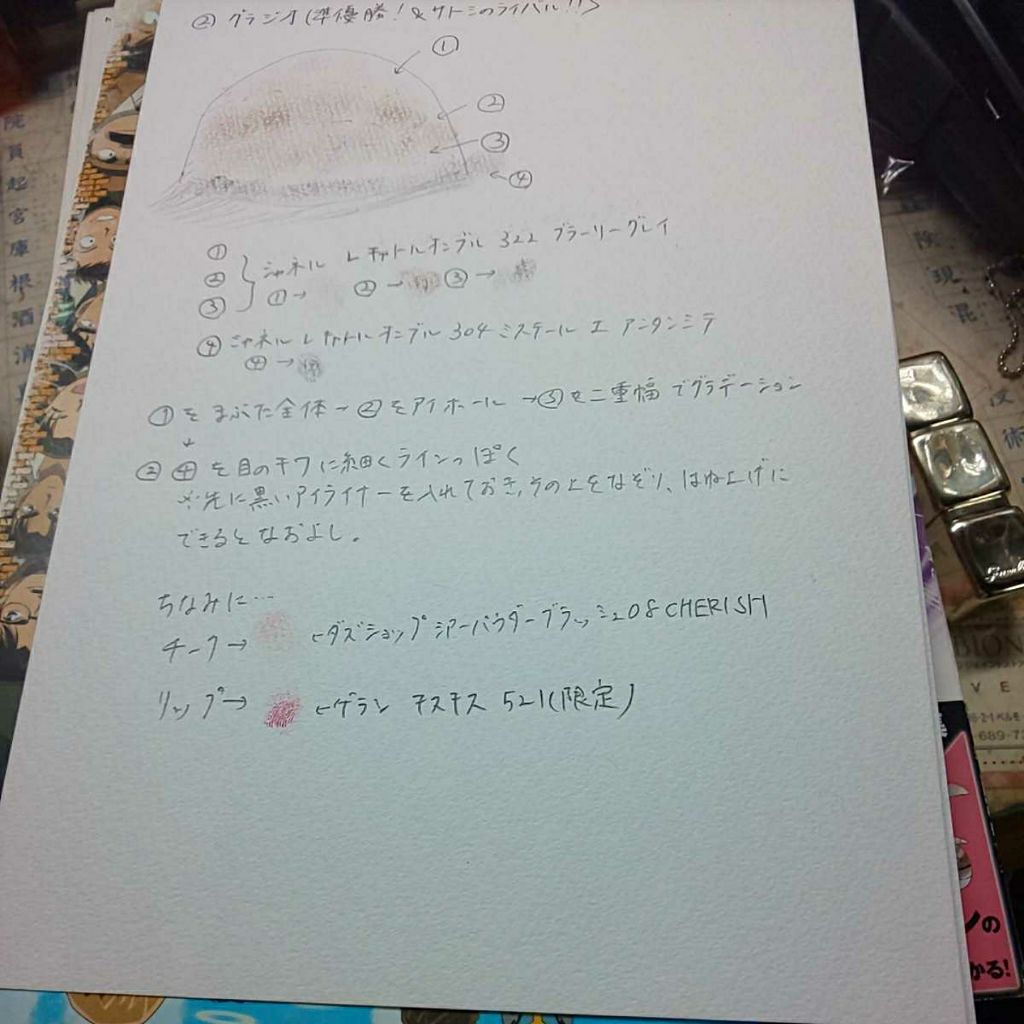 ② グラジオ(準優勝!&サトシのライバル!!)
①
②
③
④
①
②
③
シャネル レキャトルオンブル 322 ブラーリーグレイ
①→ ②→ ③→
④ シャネル レキャトルオンブル 304 ミステール エ アンタンシテ
④→
①をまぶた全体→②をアイホール→③を二重幅でグラデーション
↓
② ④を目のキワに細くラインっぽく
※先に黒いアイライナーを入れておき、その上をなぞり、はね上げに
できるとなおよし。
ちなみに…
チーク→ ←ダズショップ シアーパウダーブラッシュ08 CHERISH
リップ→ ←ゲラン キスキス 521(限定)
院員起宮庫根酒消
院現混
術
VE
689-7
ンの
かる!